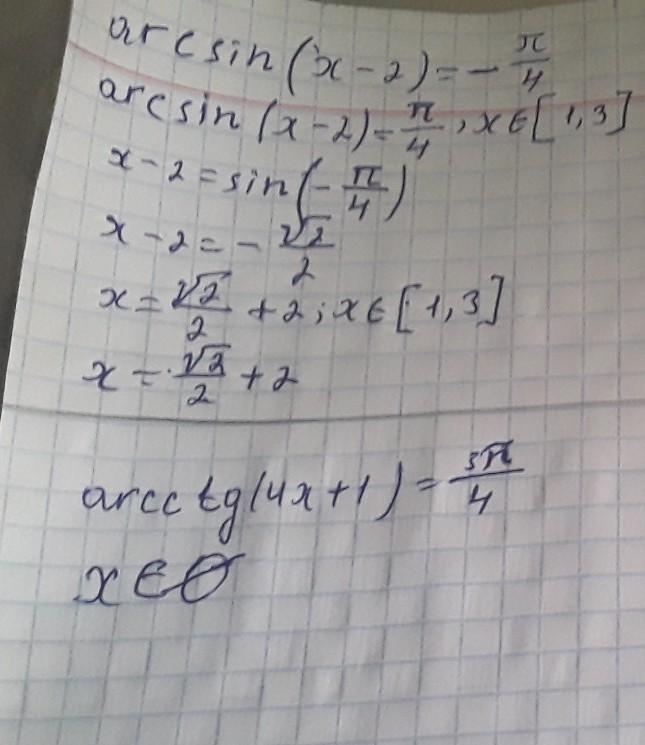 arcsin(x-2)=-π/4
arcsin(x-2)=π/4, x∈[1,3]
x-2=sin(-π/4)
x-2=-√2/2
x=√2/2+2; x∈[1,3]
x=√2/2+2
arcctg(4x+1)=3π/4
x∈∅